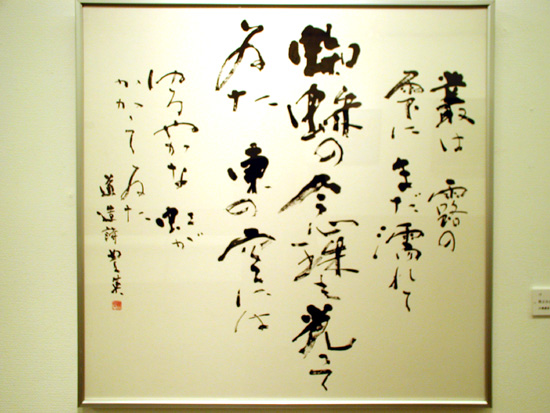 叢は 露の
雫に まだ濡れて
蜘蛛の念珠も光って
ゐた 東の空には
ゆるやかな 虹が
かかってゐた
道造詩